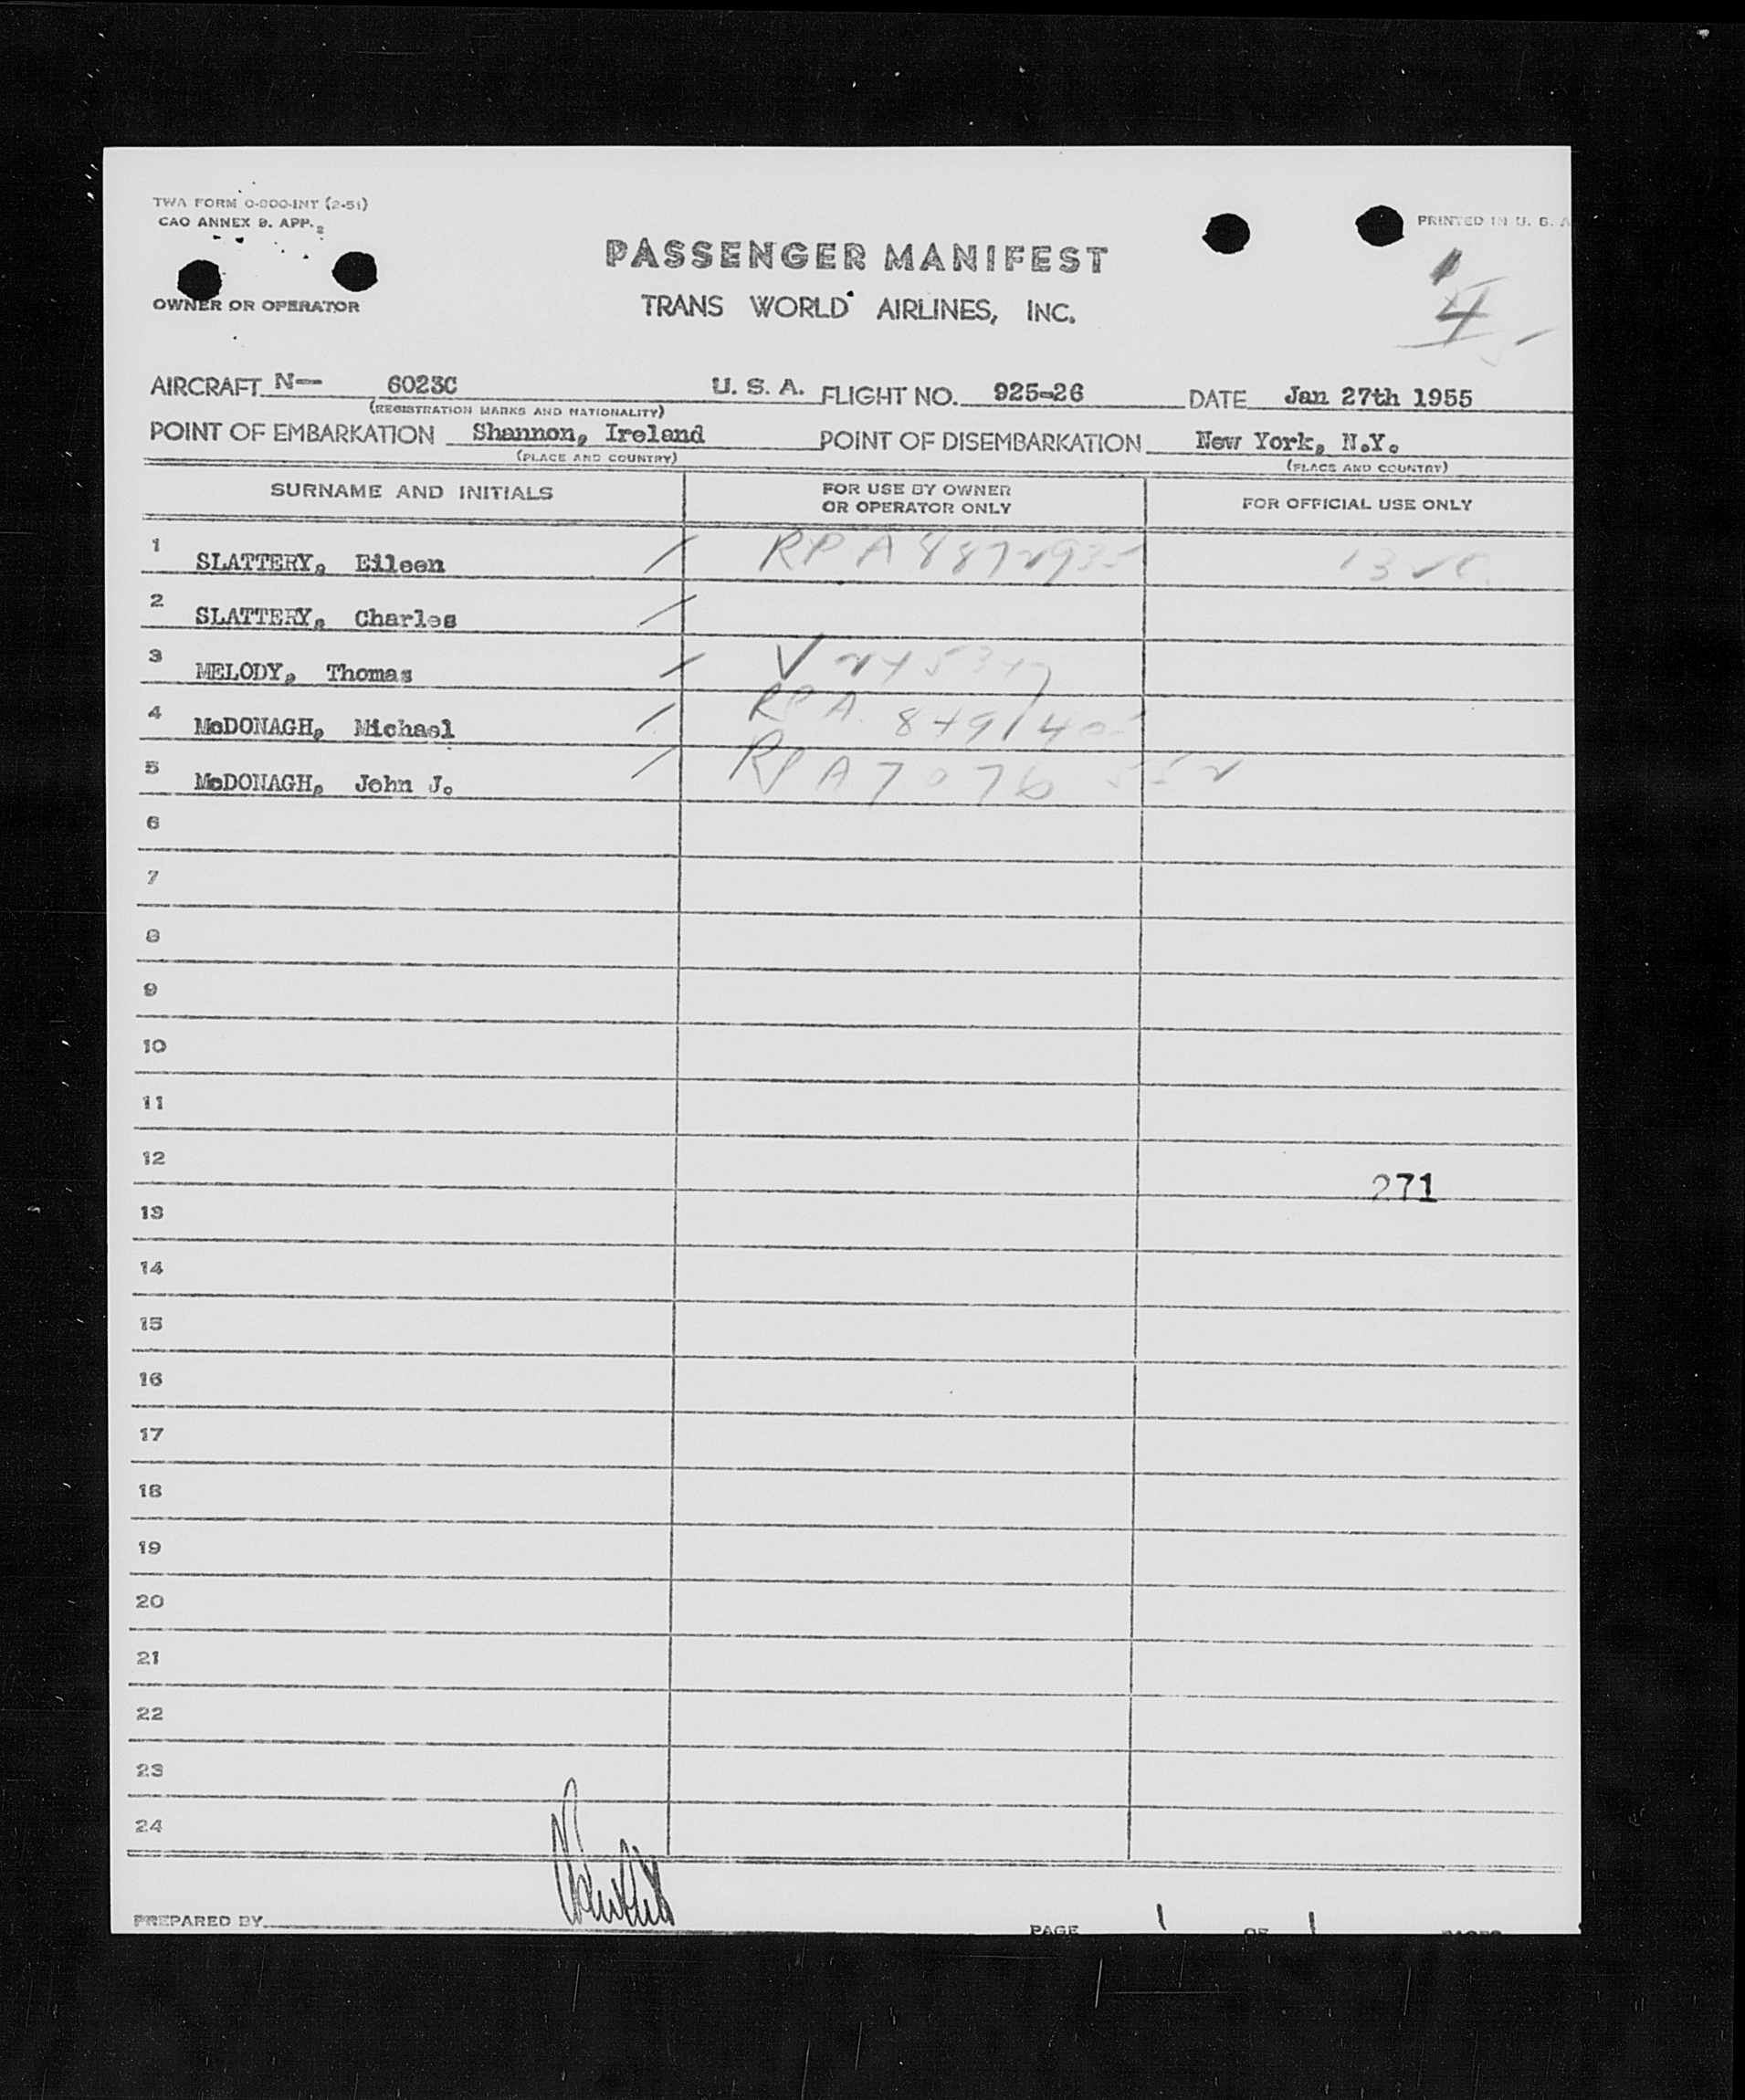 TWA FORM O-800-INT (2-51)
CAO ANNEX 9. APP. 2
PRINTED IN U. S. A
PASSENGER MANIFEST
OWNER OR OPERATOR
TRANS WORLD AIRLINES, INC.
4
AIRCRAFT N— 6023C U. S. A. FLIGHT NO. 925-26 DATE Jan 27th 1955
(REGISTRATION MARKS AND NATIONALITY)
POINT OF EMBARKATION Shannon, Ireland POINT OF DISEMBARKATION New York, N.Y.
(PLACE AND COUNTRY) (PLACE AND COUNTRY)
SURNAME AND INITIALS FOR USE BY OWNER OR OPERATOR ONLY FOR OFFICIAL USE ONLY
1 SLATTERY, Eileen / RPA
2 SLATTERY, Charles /
3 MELODY, Thomas / V
4 McDONAGH, Michael / RPA
5 McDONAGH, John J. / RPA 7076 552
6
7
8
9
10
11
12
271
13
14
15
16
17
18
19
20
21
22
23
24
PREPARED BY PAGE 1 OF 1 PAGES